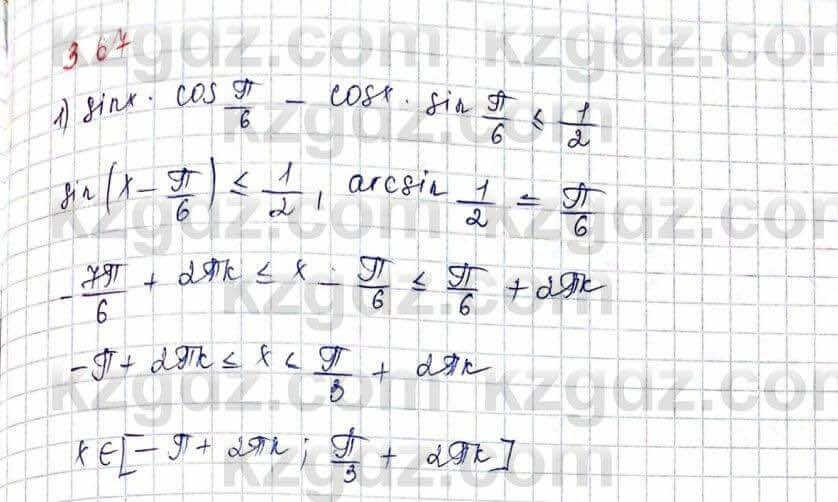 3.67
1) sinx · cos π/6 − cosx · sin π/6 ≤ 1/2
sin(x − π/6) ≤ 1/2, arcsin 1/2 = π/6
−7π/6 + 2πk ≤ x − π/6 ≤ π/6 + 2πk
−π + 2πk ≤ x < π/3 + 2πk
x ∈ [−π + 2πk ; π/3 + 2πk]
kzgdz.com